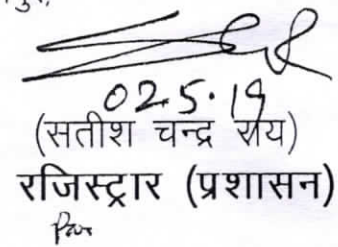 02.5.19
(सतीश चन्द्र राय)
रजिस्ट्रार (प्रशासन)